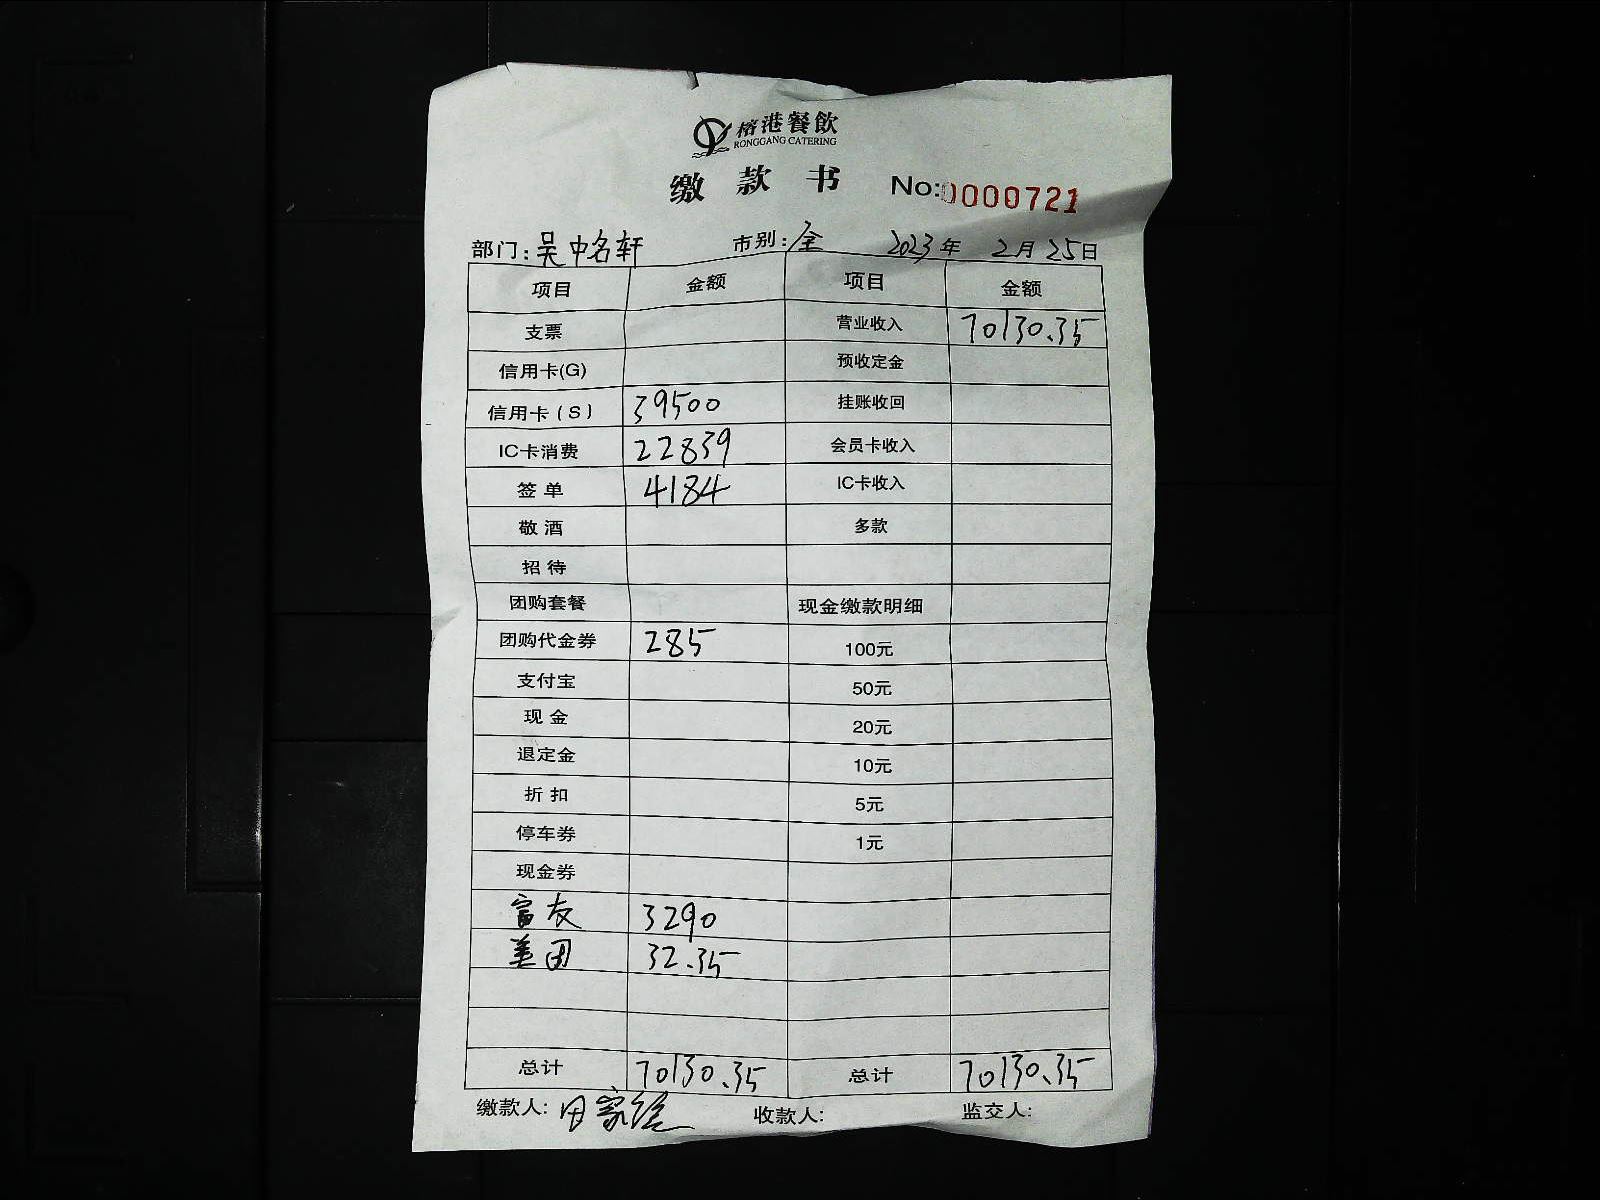 榕港餐飲
RONGGANG CATERING
缴款书 No:0000721
部门:吴中名轩 市别:全 2023年2月25日
项目 金额 项目 金额
支票 营业收入 70130.35
信用卡(G) 预收定金
信用卡(S) 39500 挂账收回
IC卡消费 22839 会员卡收入
签单 4184 IC卡收入
敬酒 多款
招待
团购套餐 现金缴款明细
团购代金券 285 100元
支付宝 50元
现金 20元
退定金 10元
折扣 5元
停车券 1元
现金券
富友 3290
美团 32.35
总计 70130.35 总计 70130.35
缴款人:田家 收款人: 监交人: